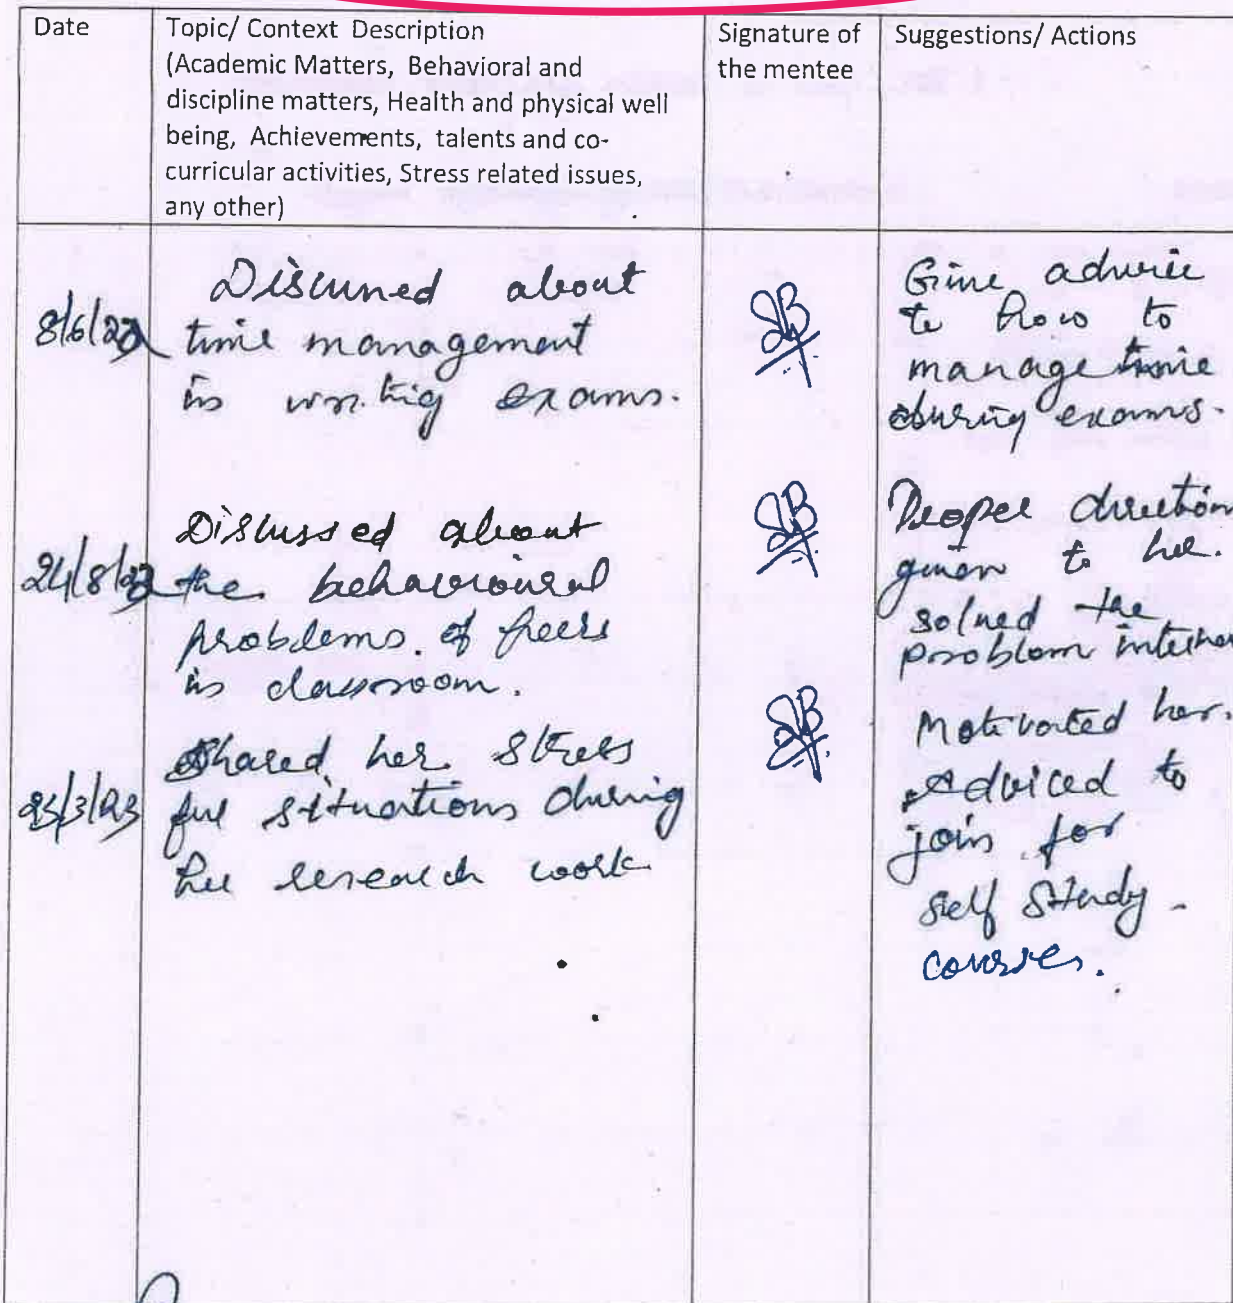 Date
Topic/ Context Description
(Academic Matters, Behavioral and
discipline matters, Health and physical well
being, Achievements, talents and co-
curricular activities, Stress related issues,
any other)
Signature of
the mentee
Suggestions/ Actions
8/6/22
Discussed about
time management
in writing exams.
Give advice
to how to
manage time
during exams.
24/8/22
Discussed about
the behavioural
problems of peers
in classroom.
Proper direction
given to her.
solved the
problem
23/3/23
Shared her stress
ful situations during
her research work
Motivated her.
Adviced to
join for
self study -
courses.